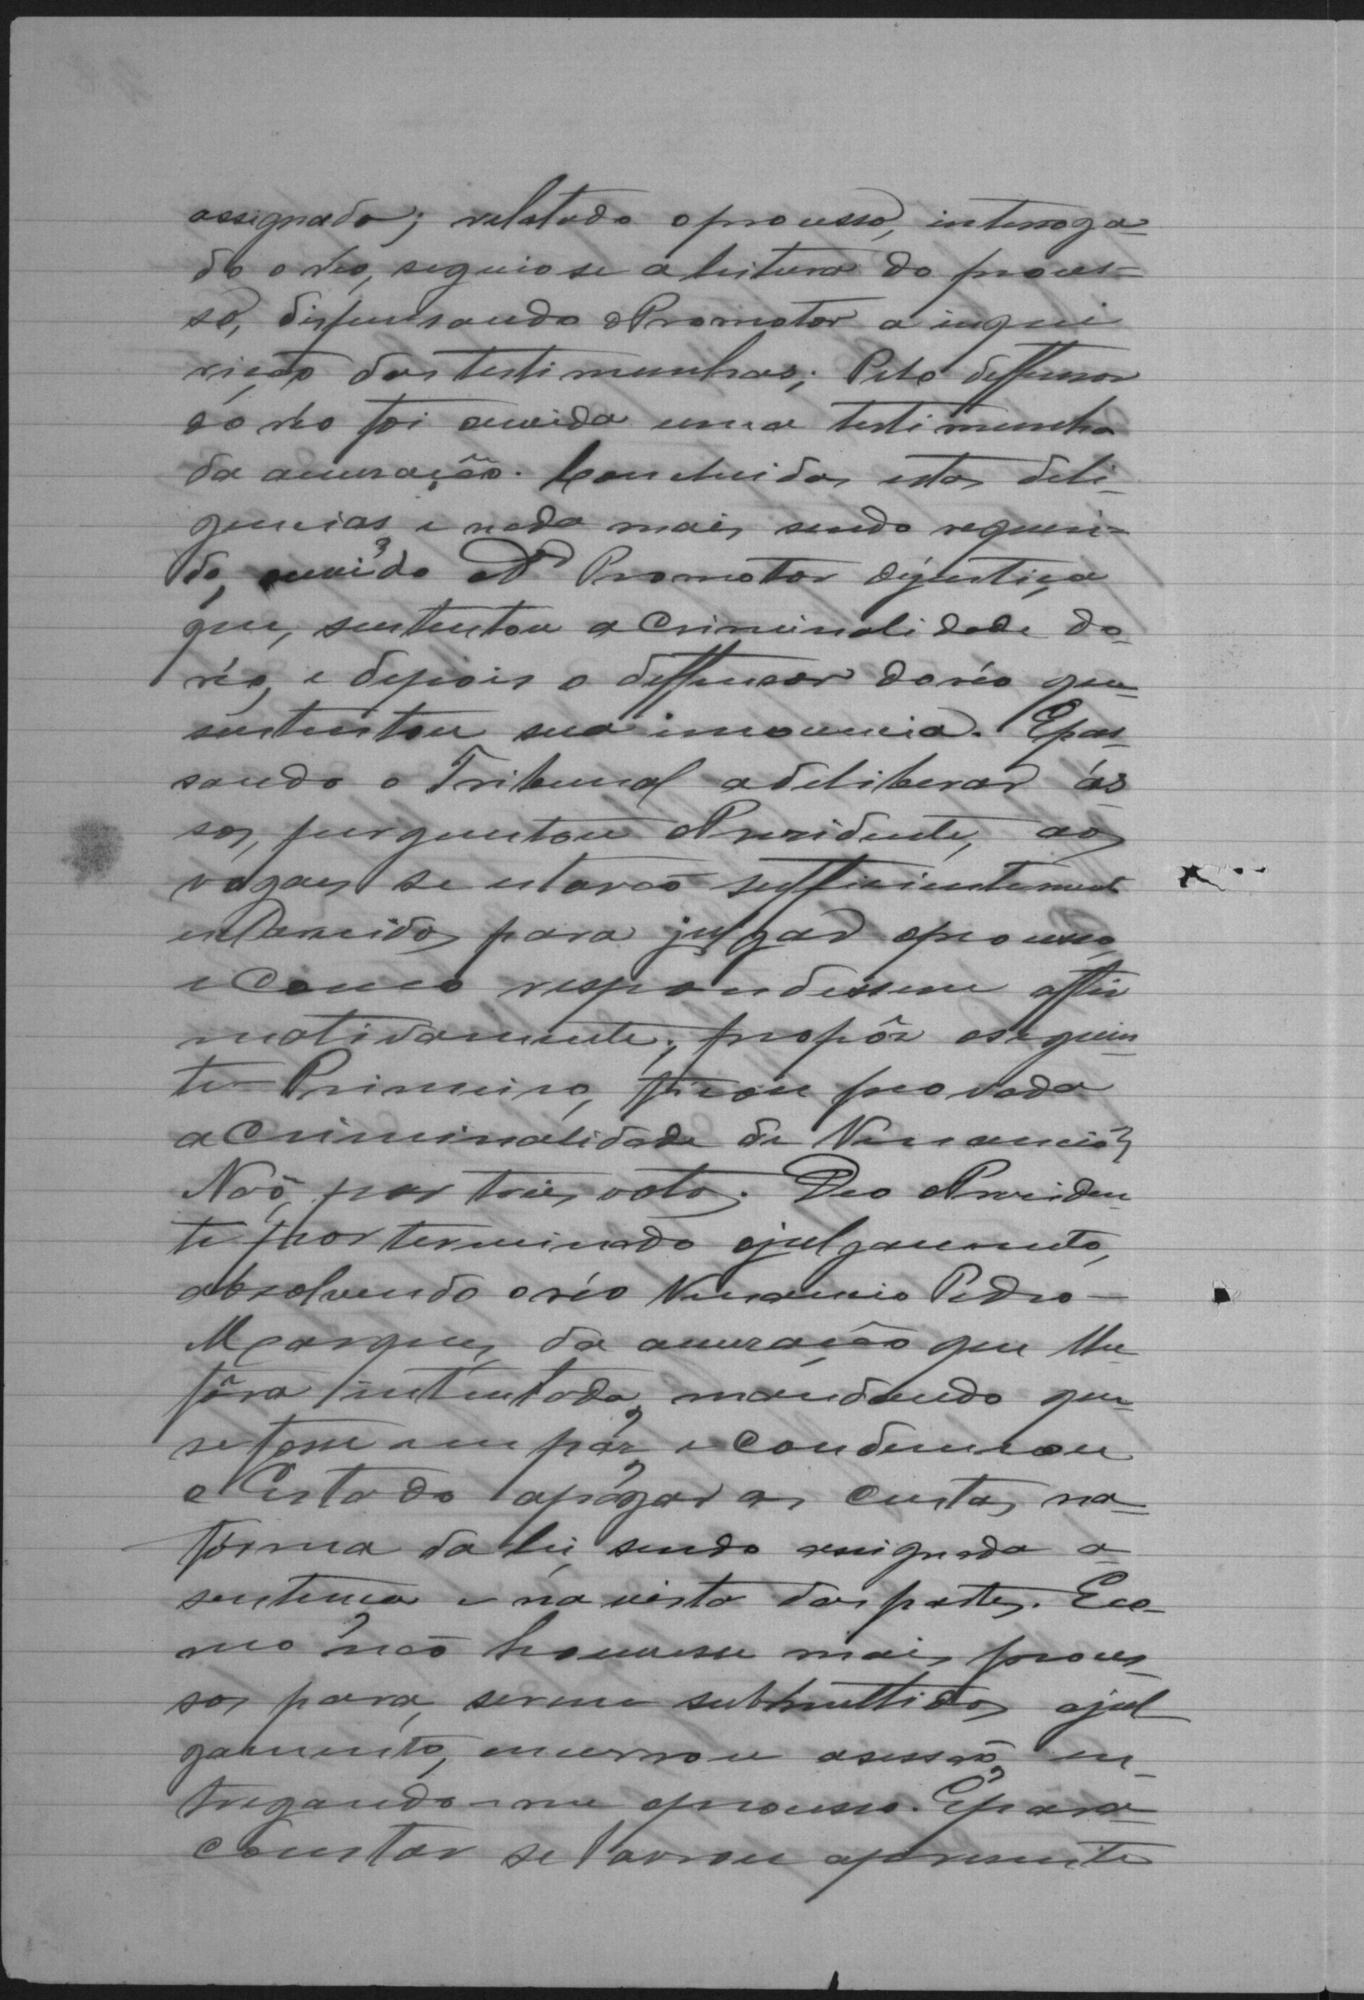 assignado; relatado o processo, interroga-
do o réo, seguio se a leitura do proces-
so, dispensando o Promotor a inqui
rição das testimunhas; Pelo deffensor
do réo foi ouvida uma testimunha
da accusação. Concluidas estas deli-
gencias e nada mais sendo requeri-
do, ouvido o Dr Promotor dejustiça
que, sustentou a Criminalidade do-
réo, e depois o deffensor do réo que
sustentou sua innocencia. E pas-
sando o Tribunal a deliberar ás
sos, perguntou o Prezidente, aos
vogaes se estavão sufficientement
esclarecidos para julgar o processo,
e Como respondessem affir
mativamente, propôz o seguin
te Primeiro, ficou provada
a Criminalidade de Venancio?
Não, por trez votos. Deo o Preziden-
te por terminado o julgamento,
absolvendo o réo Venancio Pedro
Marques, da accuzação que lhe
fôra intentada, mandando que
se fosse em páz e Condemnou
o Estado a pagar as Custas na
fórma da lei, sendo assignada a
sentença e na vista das partes. E co-
mo não houvesse mais proces-
sos para, serem submettidos o jul
gamento, encerrou a sessão, en-
tregando-me o processo. E para
constar se lavrou a presente